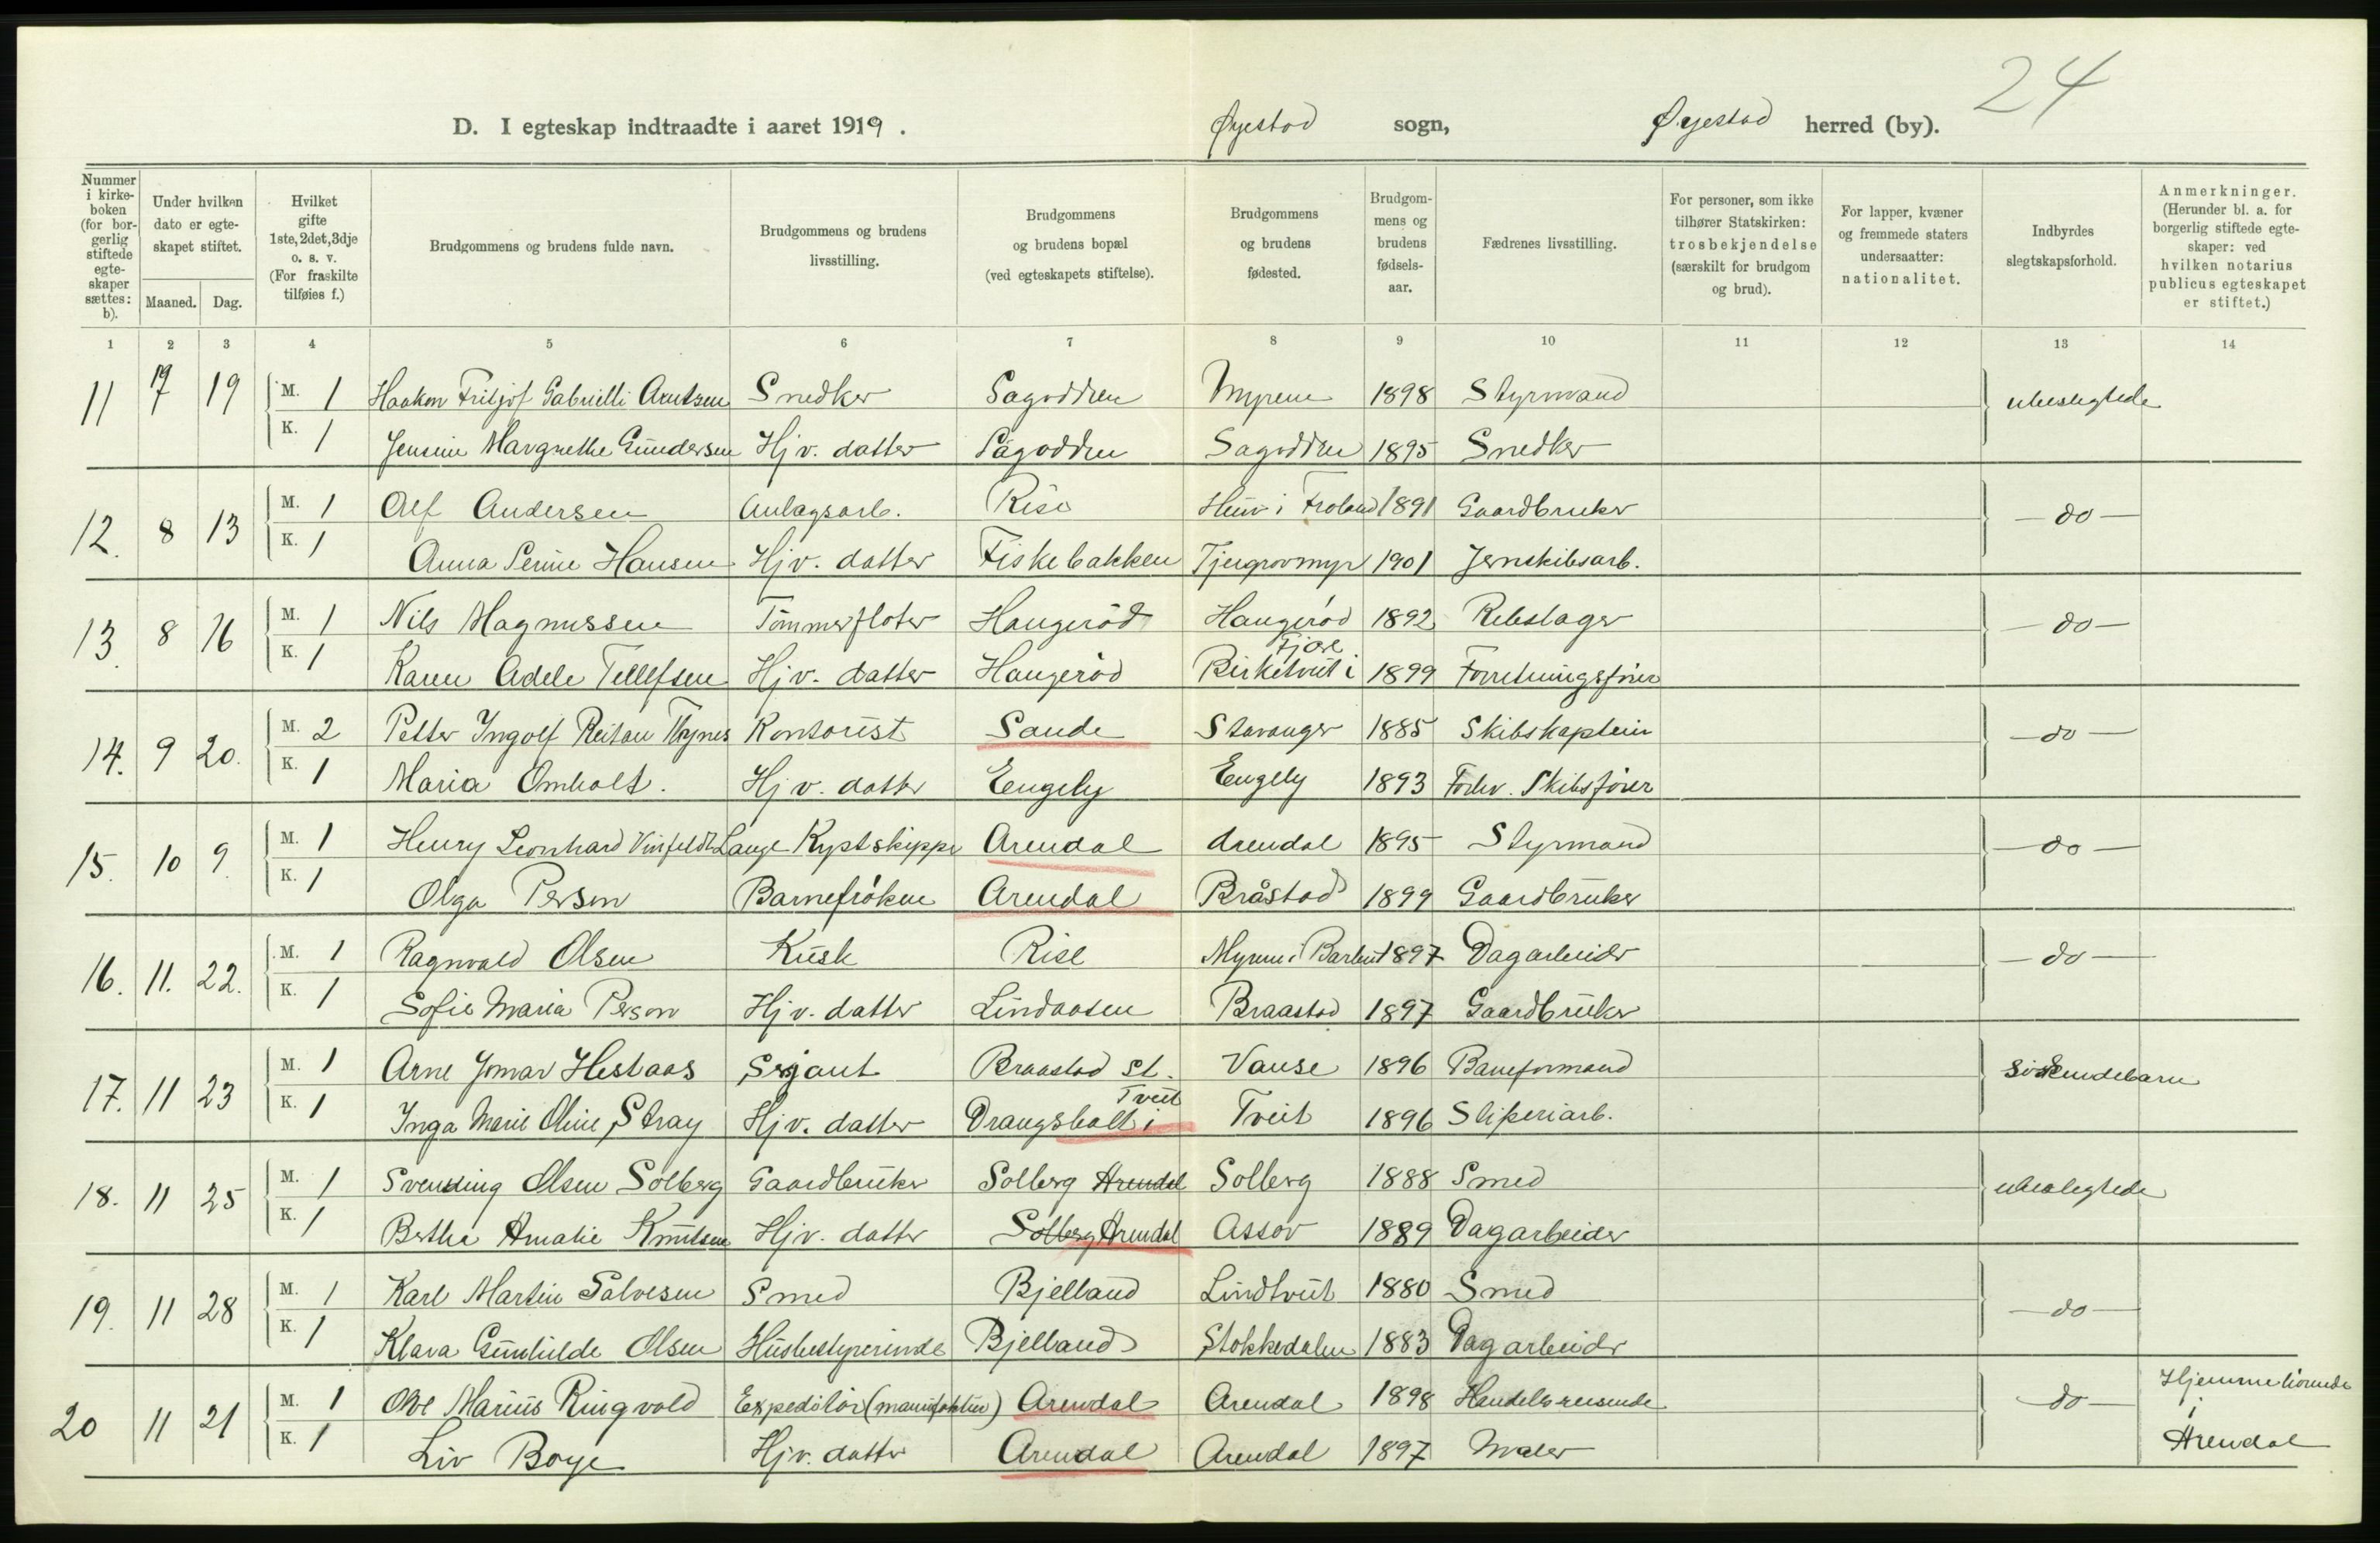 24
D. I egteskap indtraadte i aaret 1919. Øyestad sogn, Øyestad herred (by).
Nummer i kirkeboken (for borgerlig stiftede egteskaper sættes: b).
Under hvilken dato er egteskapet stiftet.
Maaned. Dag.
Hvilket gifte 1ste, 2det, 3dje o. s. v. (For fraskilte tilføies f.)
Brudgommens og brudens fulde navn.
Brudgommens og brudens livsstilling.
Brudgommens og brudens bopæl (ved egteskapets stiftelse).
Brudgommens og brudens fødested.
Brudgommens og brudens fødselsaar.
Fædrenes livsstilling.
For personer, som ikke tilhører Statskirken: trosbekjendelse (særskilt for brudgom og brud).
For lapper, kvæner og fremmede staters undersaatter: nationalitet.
Indbyrdes slegtskapsforhold.
Anmerkninger. (Herunder bl. a. for borgerlig stiftede egteskaper: ved hvilken notarius publicus egteskapet er stiftet.)
1 2 3 4 5 6 7 8 9 10 11 12 13 14
11 7 19 M. 1 Haakon Fritjof Gabrielli Arntsen Snedker Sagodden Myrene 1898 Styrmand ubeslegtede
K. 1 Jensine Margrethe Gundersen Hjv. datter Sagodden Sagodden 1895 Snedker
12. 8 13 M. 1 Alf Andersen Anlagsarb. Rise i Froland 1891 Gaardbruker - do -
K. 1 Anna Serine Hansen Hjv. datter Fiskebakken Tjengrovmyr 1901 Jernskibsarb.
13. 8 16 M. 1 Nils Magnussen Tømmerfløter Haugerød Haugerød 1892 Rebslager - do -
K. 1 Karen Adele Tellefsen Hjv. datter Haugerød Birketveit i Fjære 1899 Forretningsfører
14. 9 20. M. 2 Petter Ingolf Reitan Kontorist Sande Stavanger 1885 Skibskaptein - do -
K. 1 Maria Omholt. Hjv. datter Engely Engely 1893 Forhv. Skibsfører
15. 10 9. M. 1 Henry Leonhard Vinfeldt Lange Arendal Arendal 1895 Styrmand - do -
K. 1 Olga Person Barnefrøken Arendal Bråstad 1899 Gaardbruker
16. 11. 22. M. 1 Ragnvald Olsen Kusk Rise Myrene i Barbu 1897 Dagarbeider - do -
K. 1 Sofie Maria Person Hjv. datter Lindaasen Braastad 1897 Gaardbruker
17. 11 23 M. 1 Arne Jomar Hestaas Sersjant Braastad St. Vanse 1896 Baneformand Søskendebarn
K. 1 Inga Marie Oline Stray Hjv. datter Drangsholt i Tveit Tveit 1896 Sliperiarb.
18. 11 25 M. 1 Svenning Olsen Solberg Gaardbruker Solberg Arendal Solberg 1888 Smed ubeslegtede
K. 1 Berthe Amalie Knutsen Hjv. datter Solberg Arendal Assov 1889 Dagarbeider
19. 11 28 M. 1 Karl Martin Salvesen Smed Bjelland Lindtveit 1880 Smed - do -
K. 1 Klara Gunhilde Olsen Husbestyrerinde Bjelland Stokkedalen 1883 Dagarbeider
20 11 21 M. 1 Olve Marius Ringvold Expeditør (manufaktur) Arendal Arendal 1898 Handelsreisende - do - Hjemmehørende i Arendal
K. 1 Liv Boye Hjv. datter Arendal Arendal 1897 Maler